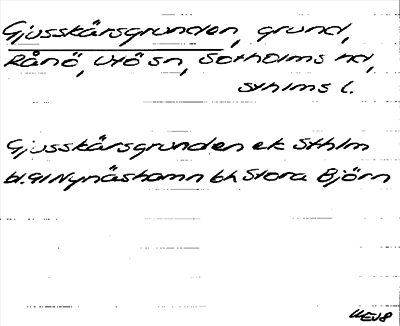 Gjusskärsgrunden, grund,
Rånö, Utö sn, Sotholms hd,
Sthlms l.
Gjusskärsgrunden ek Sthlm
bl. 91 Nynäshamn bh Stora Björn